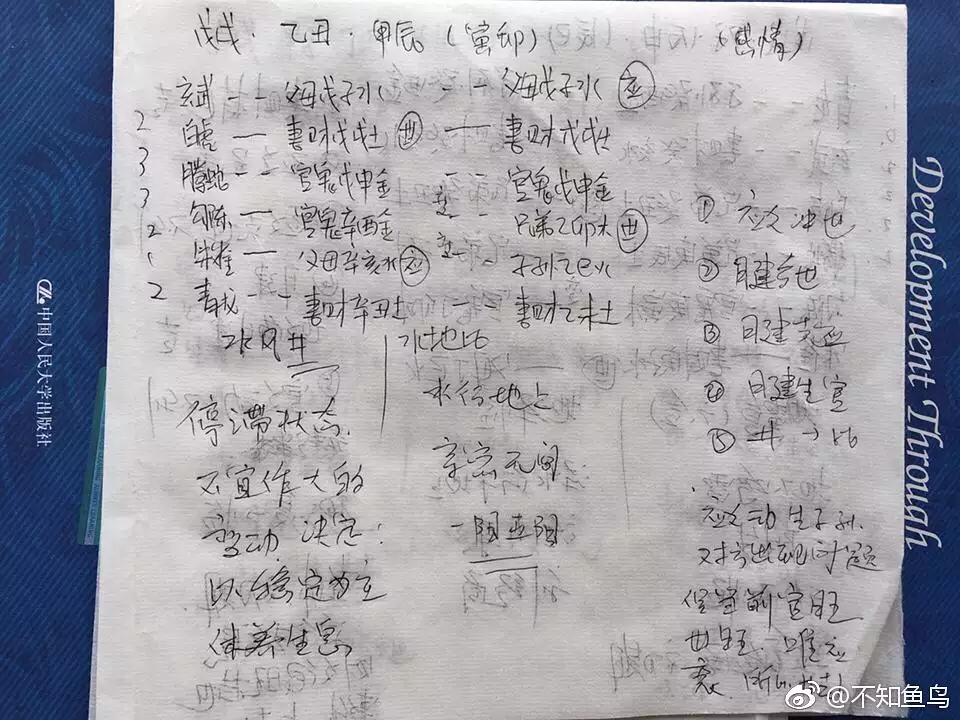 戊戌·乙丑·甲辰(寅卯) (感情)
玄武 -- 父母戊子水 -- 父母戊子水 应
2 白虎 — 妻财戊戌土 世 — 妻财戊戌土
3 腾蛇 -- 官鬼戊申金 -- 官鬼戊申金
3 勾陈 — 官鬼辛酉金 -- 兄弟乙卯木 世
2 朱雀 — 父母辛亥水 应 -- 子孙乙巳火
2 青龙 -- 妻财辛丑土 妻财乙未土
水风井
停滞状态.
不宜作大的
变动 决定:
以稳定为主
休养生息
水地比
水行地上
亲密无间
一阳五阴
① 应爻冲世
② 日建合世
③ 日建克应
④ 日建生官
⑤ 井→比
应爻动生子孙.
对方出现问题
但当前官旺
世旺. 唯应
衰.
中国人民大学出版社
Development Through
@不知鱼鸟